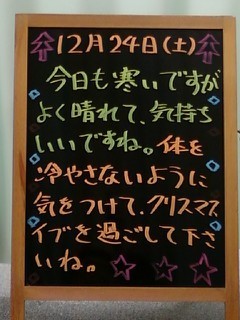 12月24日(土)
今日も寒いですが
よく晴れて、気持ち
いいですね。体を
冷やさないように
気をつけて、クリスマス
イブを過ごして下さ
いね。